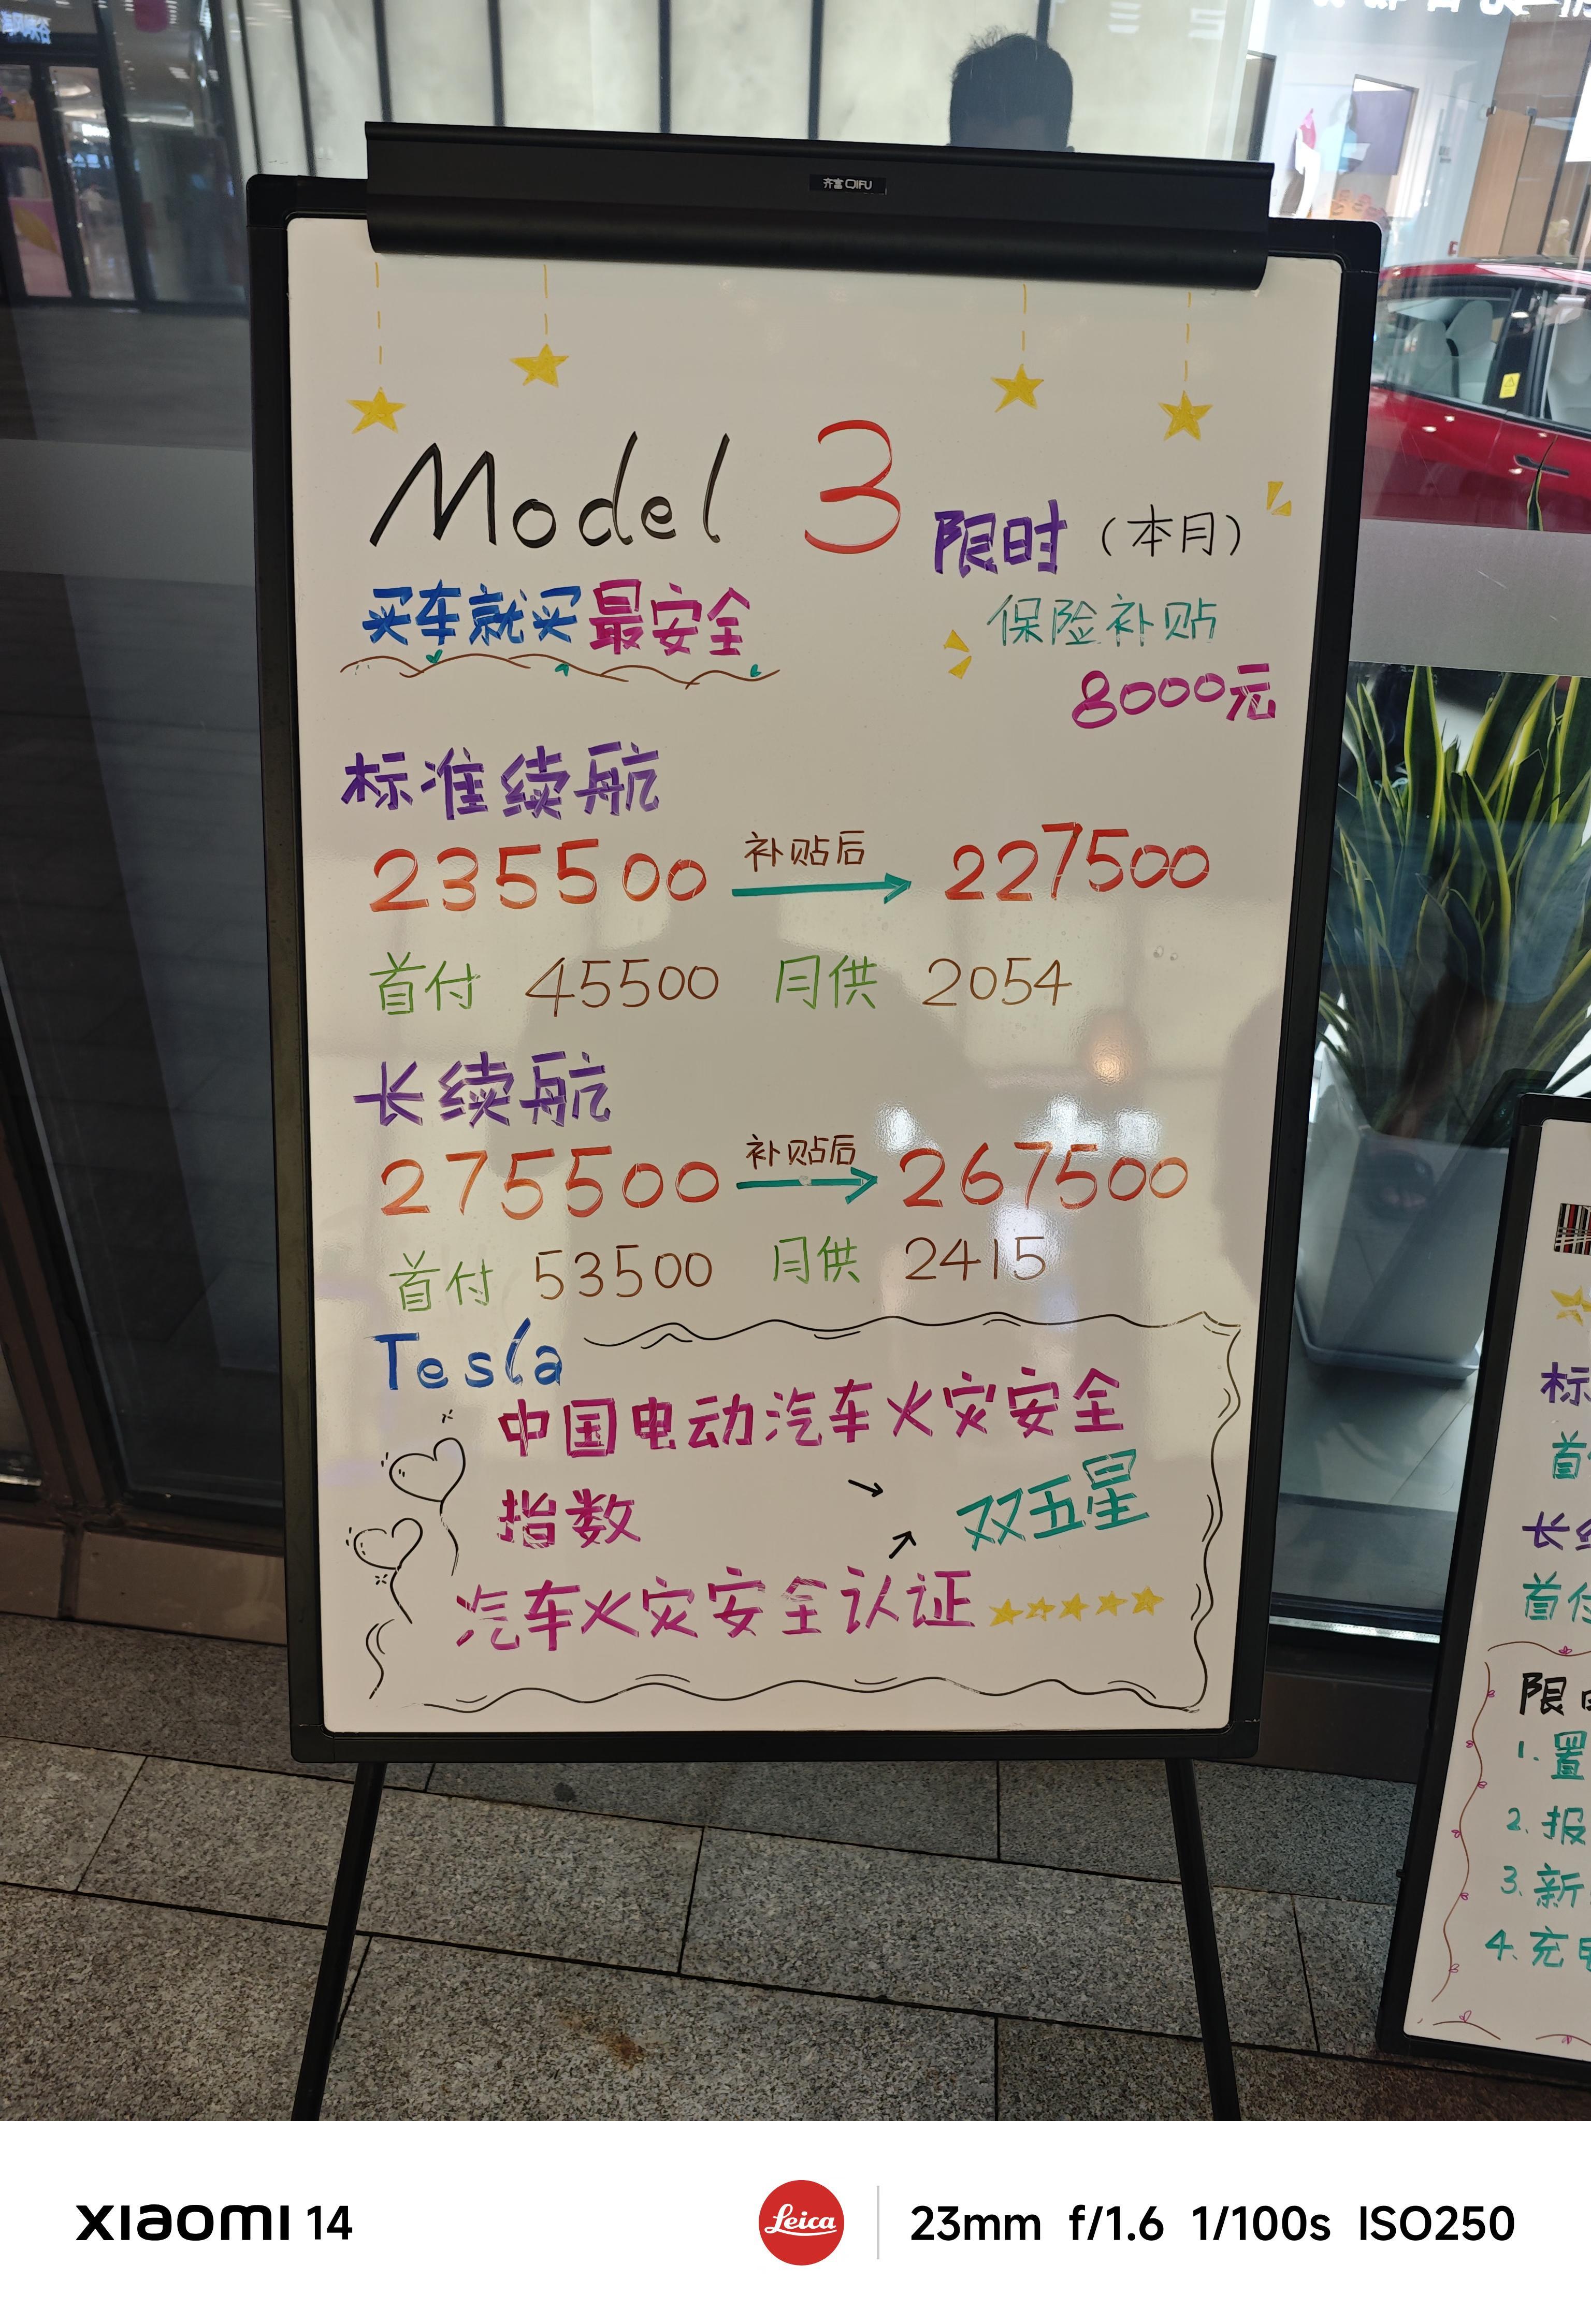 齐富 QIFU
Model 3 限时（本月）
买车就买最安全
保险补贴
8000元
标准续航
235500 补贴后 227500
首付 45500 月供 2054
长续航
275500 补贴后 267500
首付 53500 月供 2415
Tesla
中国电动汽车火灾安全
指数
双五星
汽车火灾安全认证
标
首
长
首付
限
1. 置
2. 报
3. 新
4. 充
xiaomi 14
Leica
23mm f/1.6 1/100s ISO250